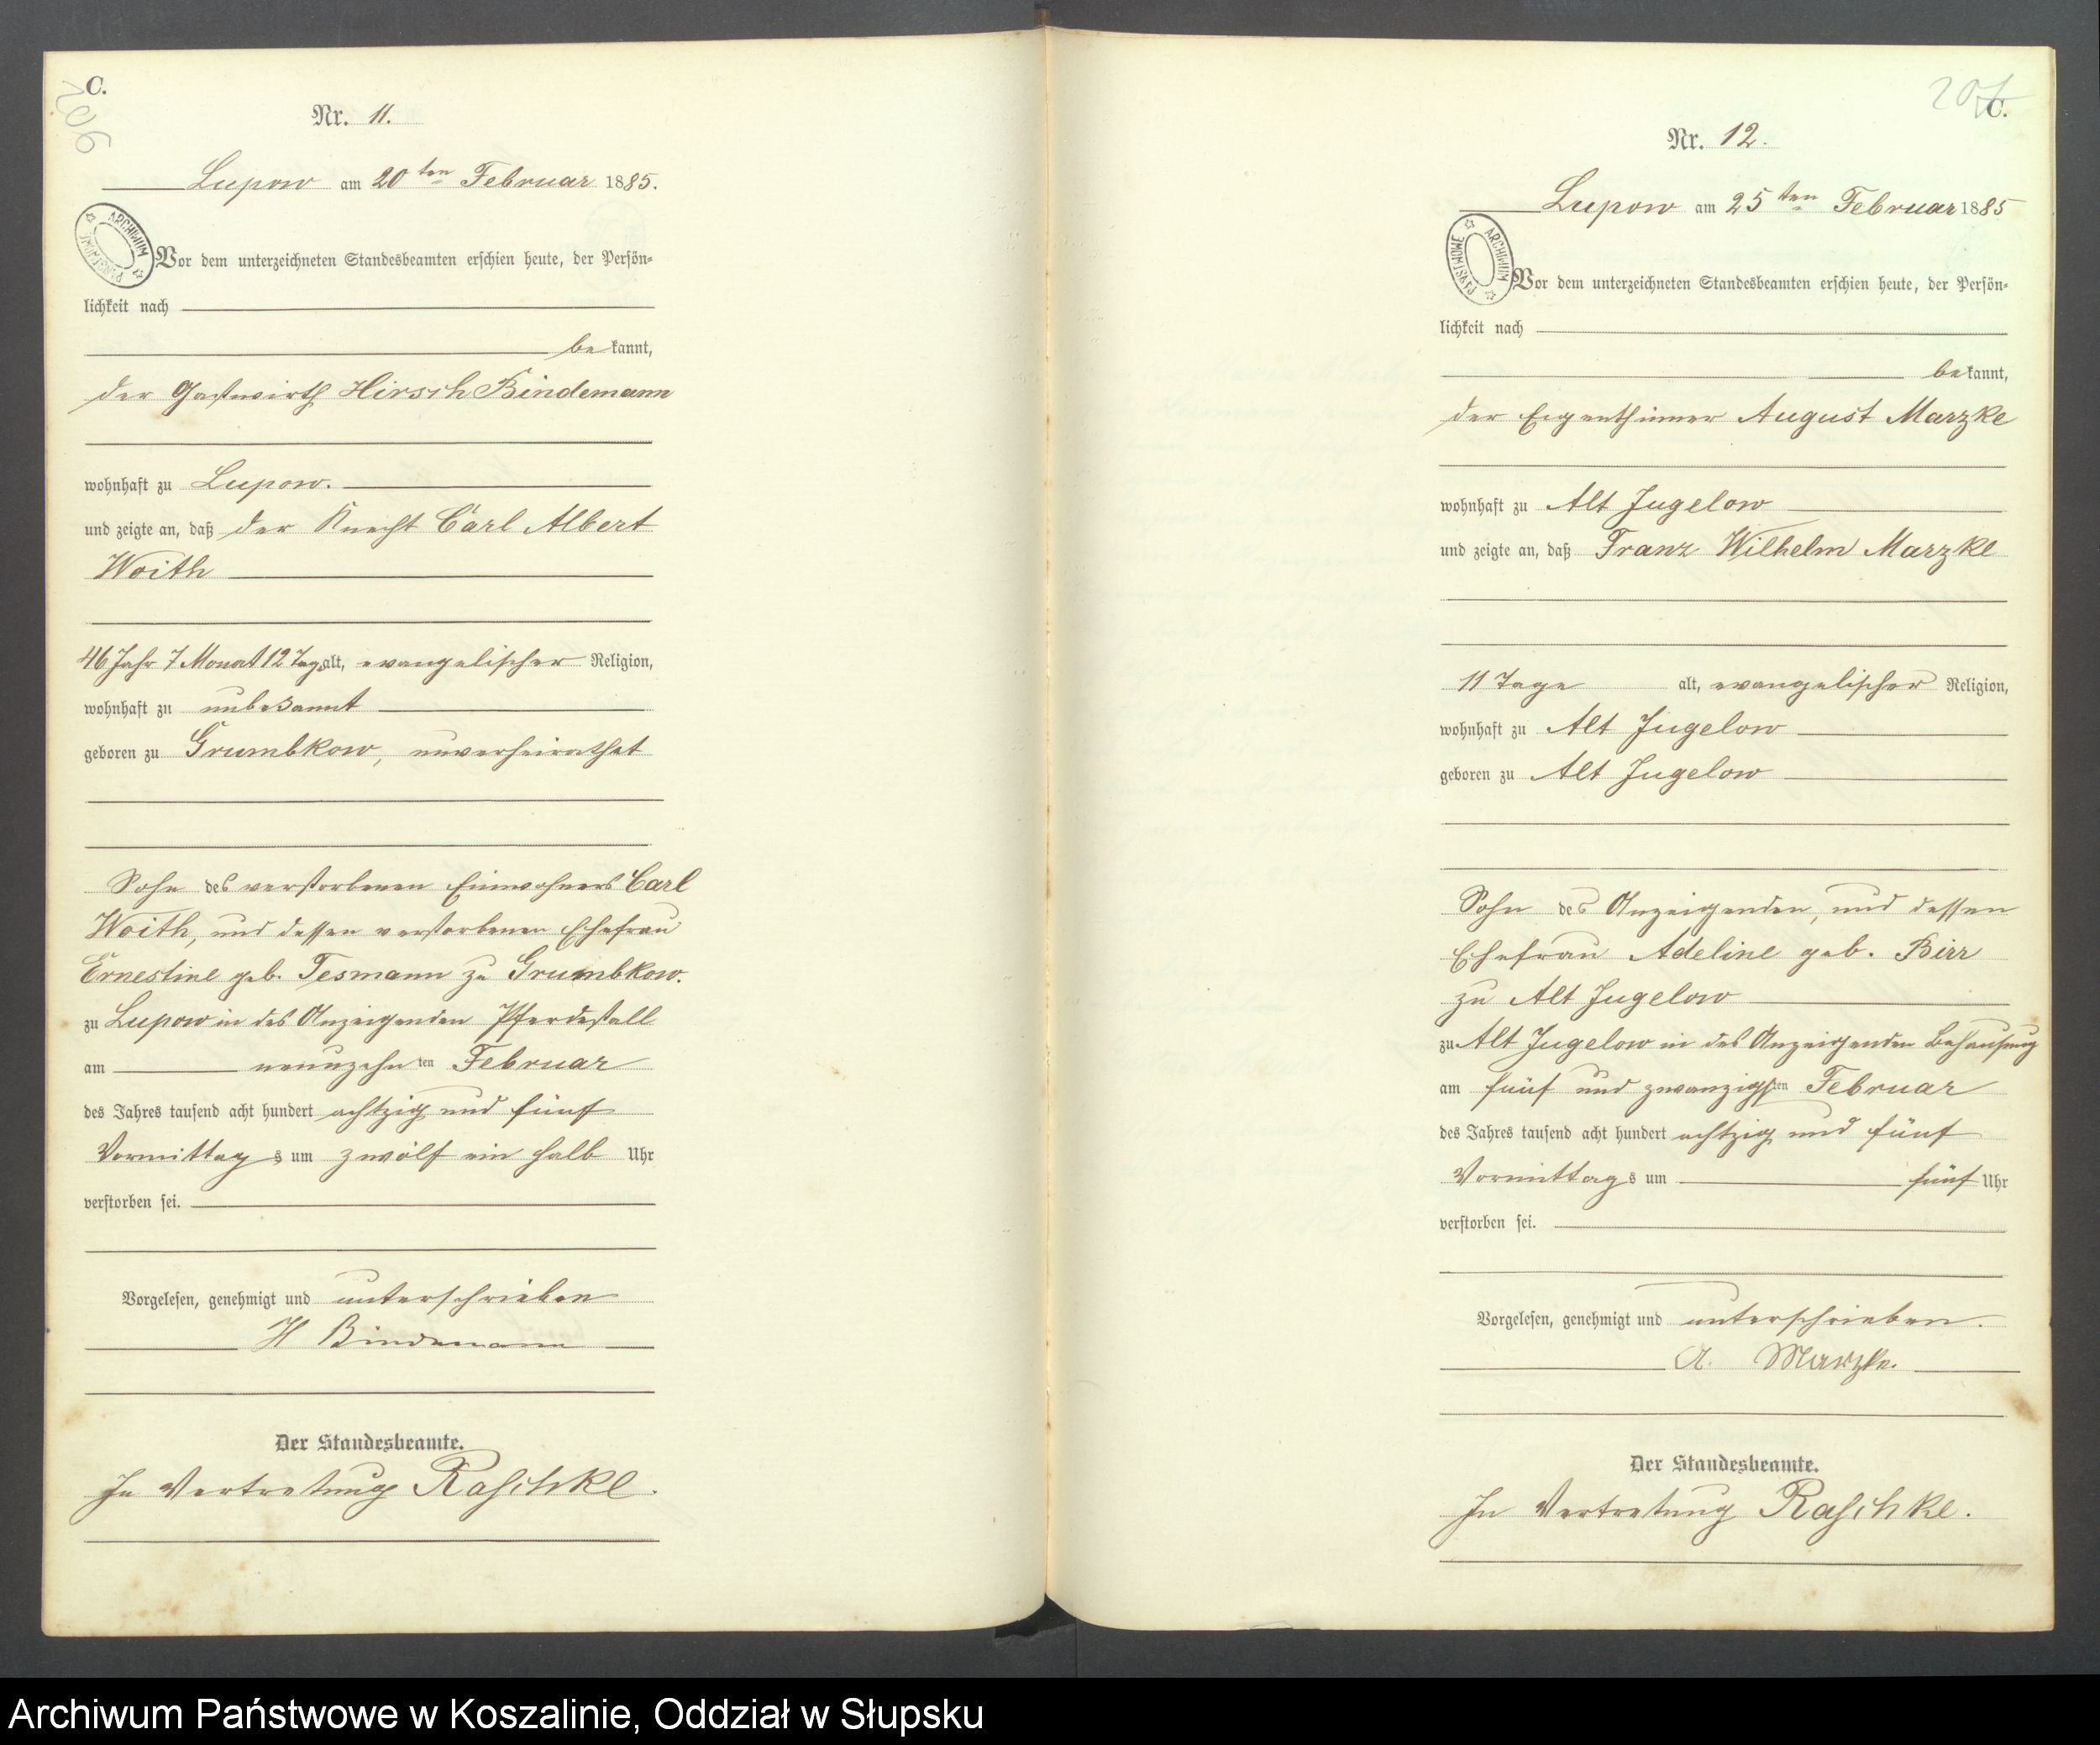 C.
206
Nr. 11.
Lupow am 20ten Februar 1885.
ARCHIWUM PAŃSTWOWE
Vor dem unterzeichneten Standesbeamten erschien heute, der Persön-
lichkeit nach
bekannt,
der Gastwirth Hirsch Bindemann
wohnhaft zu Lupow.
und zeigte an, daß der Knecht Carl Albert
Woith
46 Jahr 7 Monat 12 Tage alt, evangelischer Religion,
wohnhaft zu unbekannt
geboren zu Grumbkow, unverheirathet
Sohn des verstorbenen Einwohners Carl
Woith, und dessen verstorbenen Ehefrau
Ernestine geb. Tesmann zu Grumbkow.
zu Lupow in des Anzeigenden Pferdestall
am neunzehnten Februar
des Jahres tausend acht hundert achtzig und fünf
Vormittags um zwölf ein halb Uhr
verstorben sei.
Vorgelesen, genehmigt und unterschrieben
H Bindemann
Der Standesbeamte.
In Vertretung Raschke.
207
C.
Nr. 12.
Lupow am 25ten Februar 1885
ARCHIWUM PAŃSTWOWE
Vor dem unterzeichneten Standesbeamten erschien heute, der Persön-
lichkeit nach
bekannt,
der Eigenthümer August Marzke
wohnhaft zu Alt Jugelow
und zeigte an, daß Franz Wilhelm Marzke
11 Tage alt, evangelischer Religion,
wohnhaft zu Alt Jugelow
geboren zu Alt Jugelow
Sohn des Anzeigenden, und dessen
Ehefrau Adeline geb. Birr
zu Alt Jugelow
zu Alt Jugelow in des Anzeigenden Behausung
am fünf und zwanzigsten Februar
des Jahres tausend acht hundert achtzig und fünf
Vormittags um fünf Uhr
verstorben sei.
Vorgelesen, genehmigt und unterschrieben.
A. Marzke.
Der Standesbeamte.
In Vertretung Raschke.
Archiwum Państwowe w Koszalinie, Oddział w Słupsku